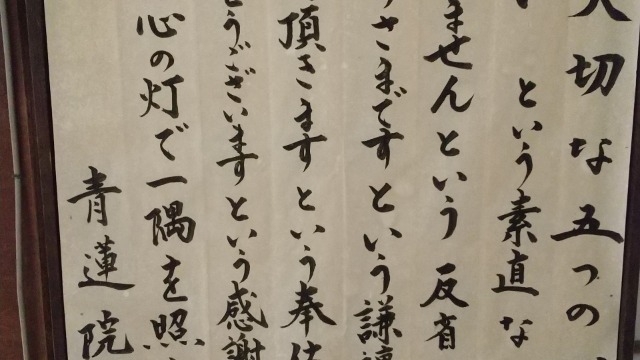 大切な五つの
という素直な
ませんという反省
さまですという謙
頂きますという奉仕
とうございますという感謝
心の灯で一隅を照
青蓮院